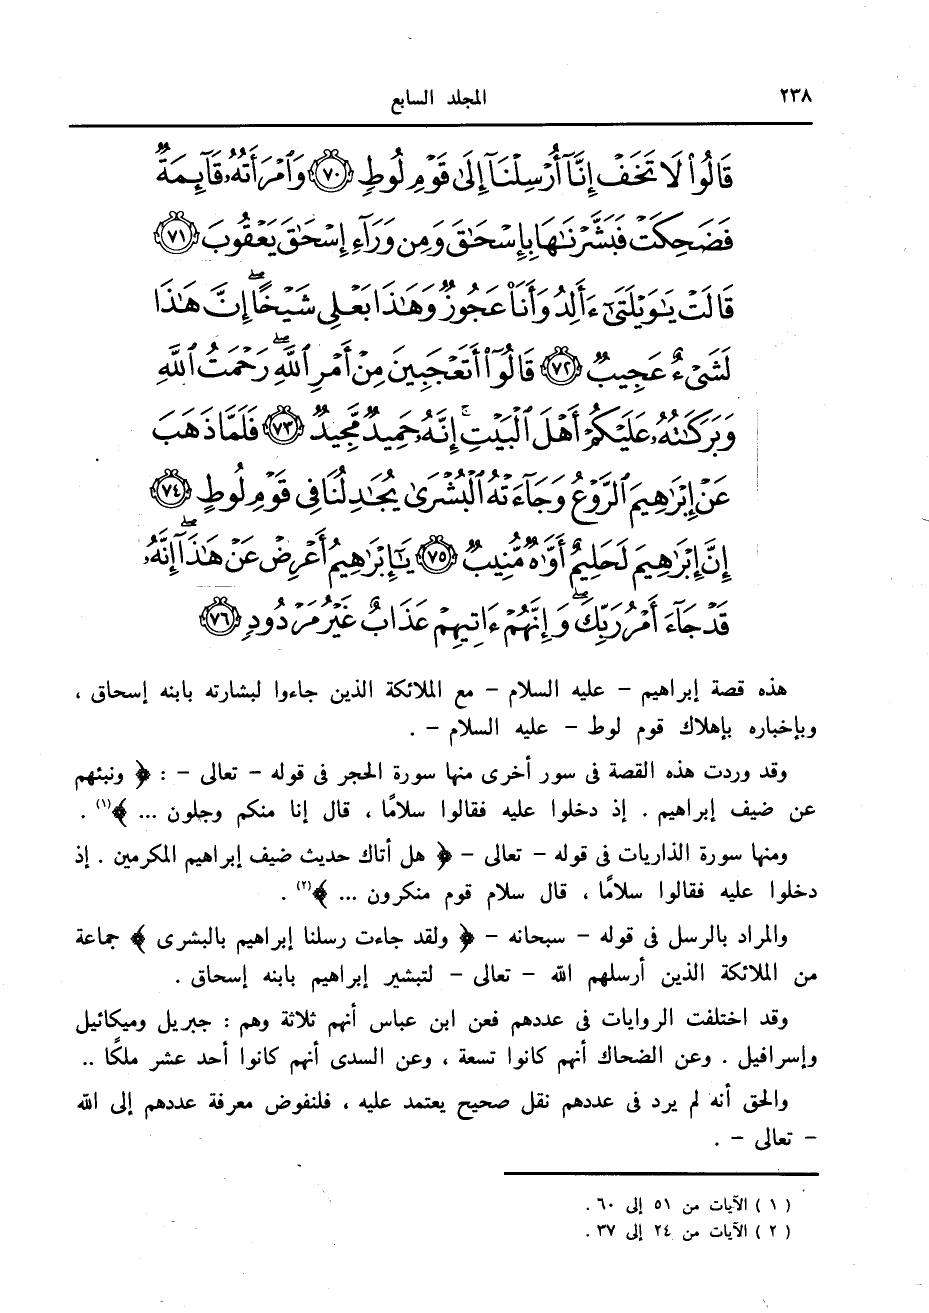 ٢٣٨
المجلد السابع
قَالُوا۟ لَا تَخَفْ إِنَّآ أُرْسِلْنَآ إِلَىٰ قَوْمِ لُوطٍ ﴿٧٠﴾ وَٱمْرَأَتُهُۥ قَآئِمَةٌ
فَضَحِكَتْ فَبَشَّرْنَـٰهَا بِإِسْحَـٰقَ وَمِن وَرَآءِ إِسْحَـٰقَ يَعْقُوبَ ﴿٧١﴾
قَالَتْ يَـٰوَيْلَتَىٰٓ ءَأَلِدُ وَأَنَا۠ عَجُوزٌ وَهَـٰذَا بَعْلِى شَيْخًا ۖ إِنَّ هَـٰذَا
لَشَىْءٌ عَجِيبٌ ﴿٧٢﴾ قَالُوٓا۟ أَتَعْجَبِينَ مِنْ أَمْرِ ٱللَّهِ ۖ رَحْمَتُ ٱللَّهِ
وَبَرَكَـٰتُهُۥ عَلَيْكُمْ أَهْلَ ٱلْبَيْتِ ۚ إِنَّهُۥ حَمِيدٌ مَّجِيدٌ ﴿٧٣﴾ فَلَمَّا ذَهَبَ
عَنْ إِبْرَٰهِيمَ ٱلرَّوْعُ وَجَآءَتْهُ ٱلْبُشْرَىٰ يُجَـٰدِلُنَا فِى قَوْمِ لُوطٍ ﴿٧٤﴾
إِنَّ إِبْرَٰهِيمَ لَحَلِيمٌ أَوَّٰهٌ مُّنِيبٌ ﴿٧٥﴾ يَـٰٓإِبْرَٰهِيمُ أَعْرِضْ عَنْ هَـٰذَآ ۖ إِنَّهُۥ
قَدْ جَآءَ أَمْرُ رَبِّكَ ۖ وَإِنَّهُمْ ءَاتِيهِمْ عَذَابٌ غَيْرُ مَرْدُودٍ ﴿٧٦﴾
هذه قصة إبراهيم – عليه السلام – مع الملائكة الذين جاءوا لبشارته بابنه إسحاق ،
وبإخباره بإهلاك قوم لوط – عليه السلام – .
وقد وردت هذه القصة فى سور أخرى منها سورة الحجر فى قوله – تعالى – : ﴿ ونبئهم
عن ضيف إبراهيم . إذ دخلوا عليه فقالوا سلامًا ، قال إنا منكم وجلون ... ﴾(١) .
ومنها سورة الذاريات فى قوله – تعالى – ﴿ هل أتاك حديث ضيف إبراهيم المكرمين . إذ
دخلوا عليه فقالوا سلامًا ، قال سلام قوم منكرون ... ﴾(٢) .
والمراد بالرسل فى قوله – سبحانه – ﴿ ولقد جاءت رسلنا إبراهيم بالبشرى ﴾ جماعة
من الملائكة الذين أرسلهم الله – تعالى – لتبشير إبراهيم بابنه إسحاق .
وقد اختلفت الروايات فى عددهم فعن ابن عباس أنهم ثلاثة وهم : جبريل وميكائيل
وإسرافيل . وعن الضحاك أنهم كانوا تسعة ، وعن السدى أنهم كانوا أحد عشر ملكًا ..
والحق أنه لم يرد فى عددهم نقل صحيح يعتمد عليه ، فلنفوض معرفة عددهم إلى الله
– تعالى – .
( ١ ) الآيات من ٥١ إلى ٦٠ .
( ٢ ) الآيات من ٢٤ إلى ٣٧ .